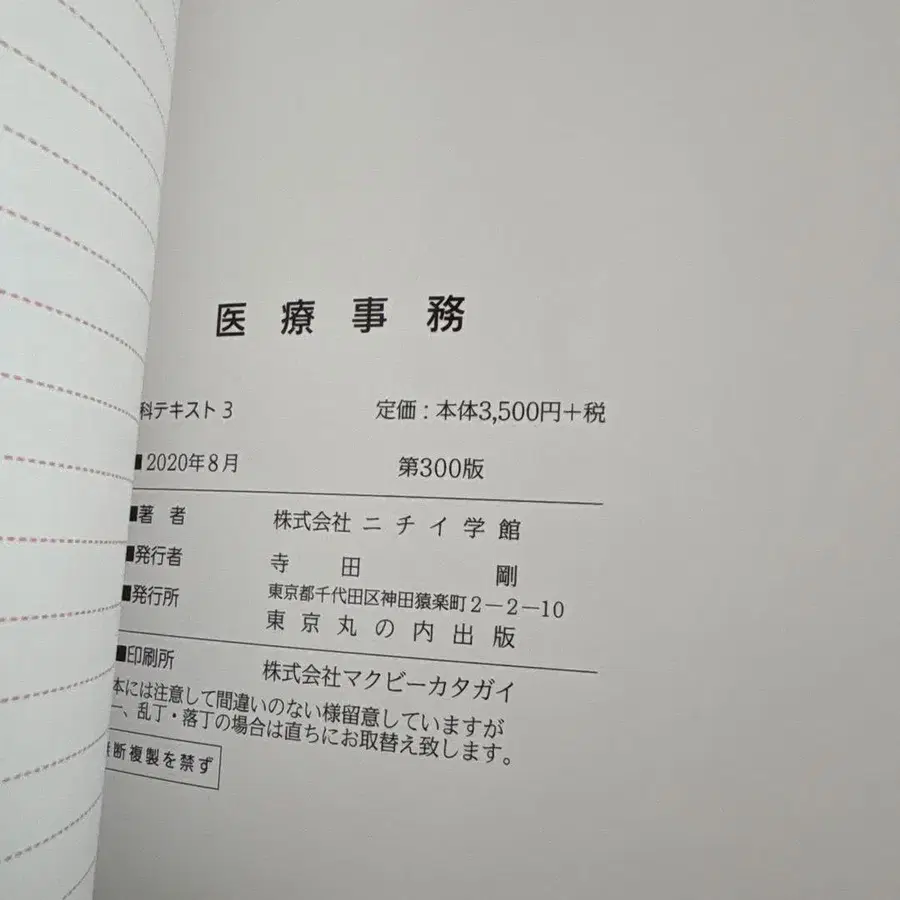 医療事務
科テキスト3 定価:本体3,500円+税
■2020年8月 第300版
■著者 株式会社 ニチイ学館
■発行者 寺田 剛
■発行所 東京都千代田区神田猿楽町2-2-10
東京丸の内出版
■印刷所 株式会社マクビーカタガイ
本には注意して間違いのない様留意していますが
一、乱丁・落丁の場合は直ちにお取替え致します。
断複製を禁ず